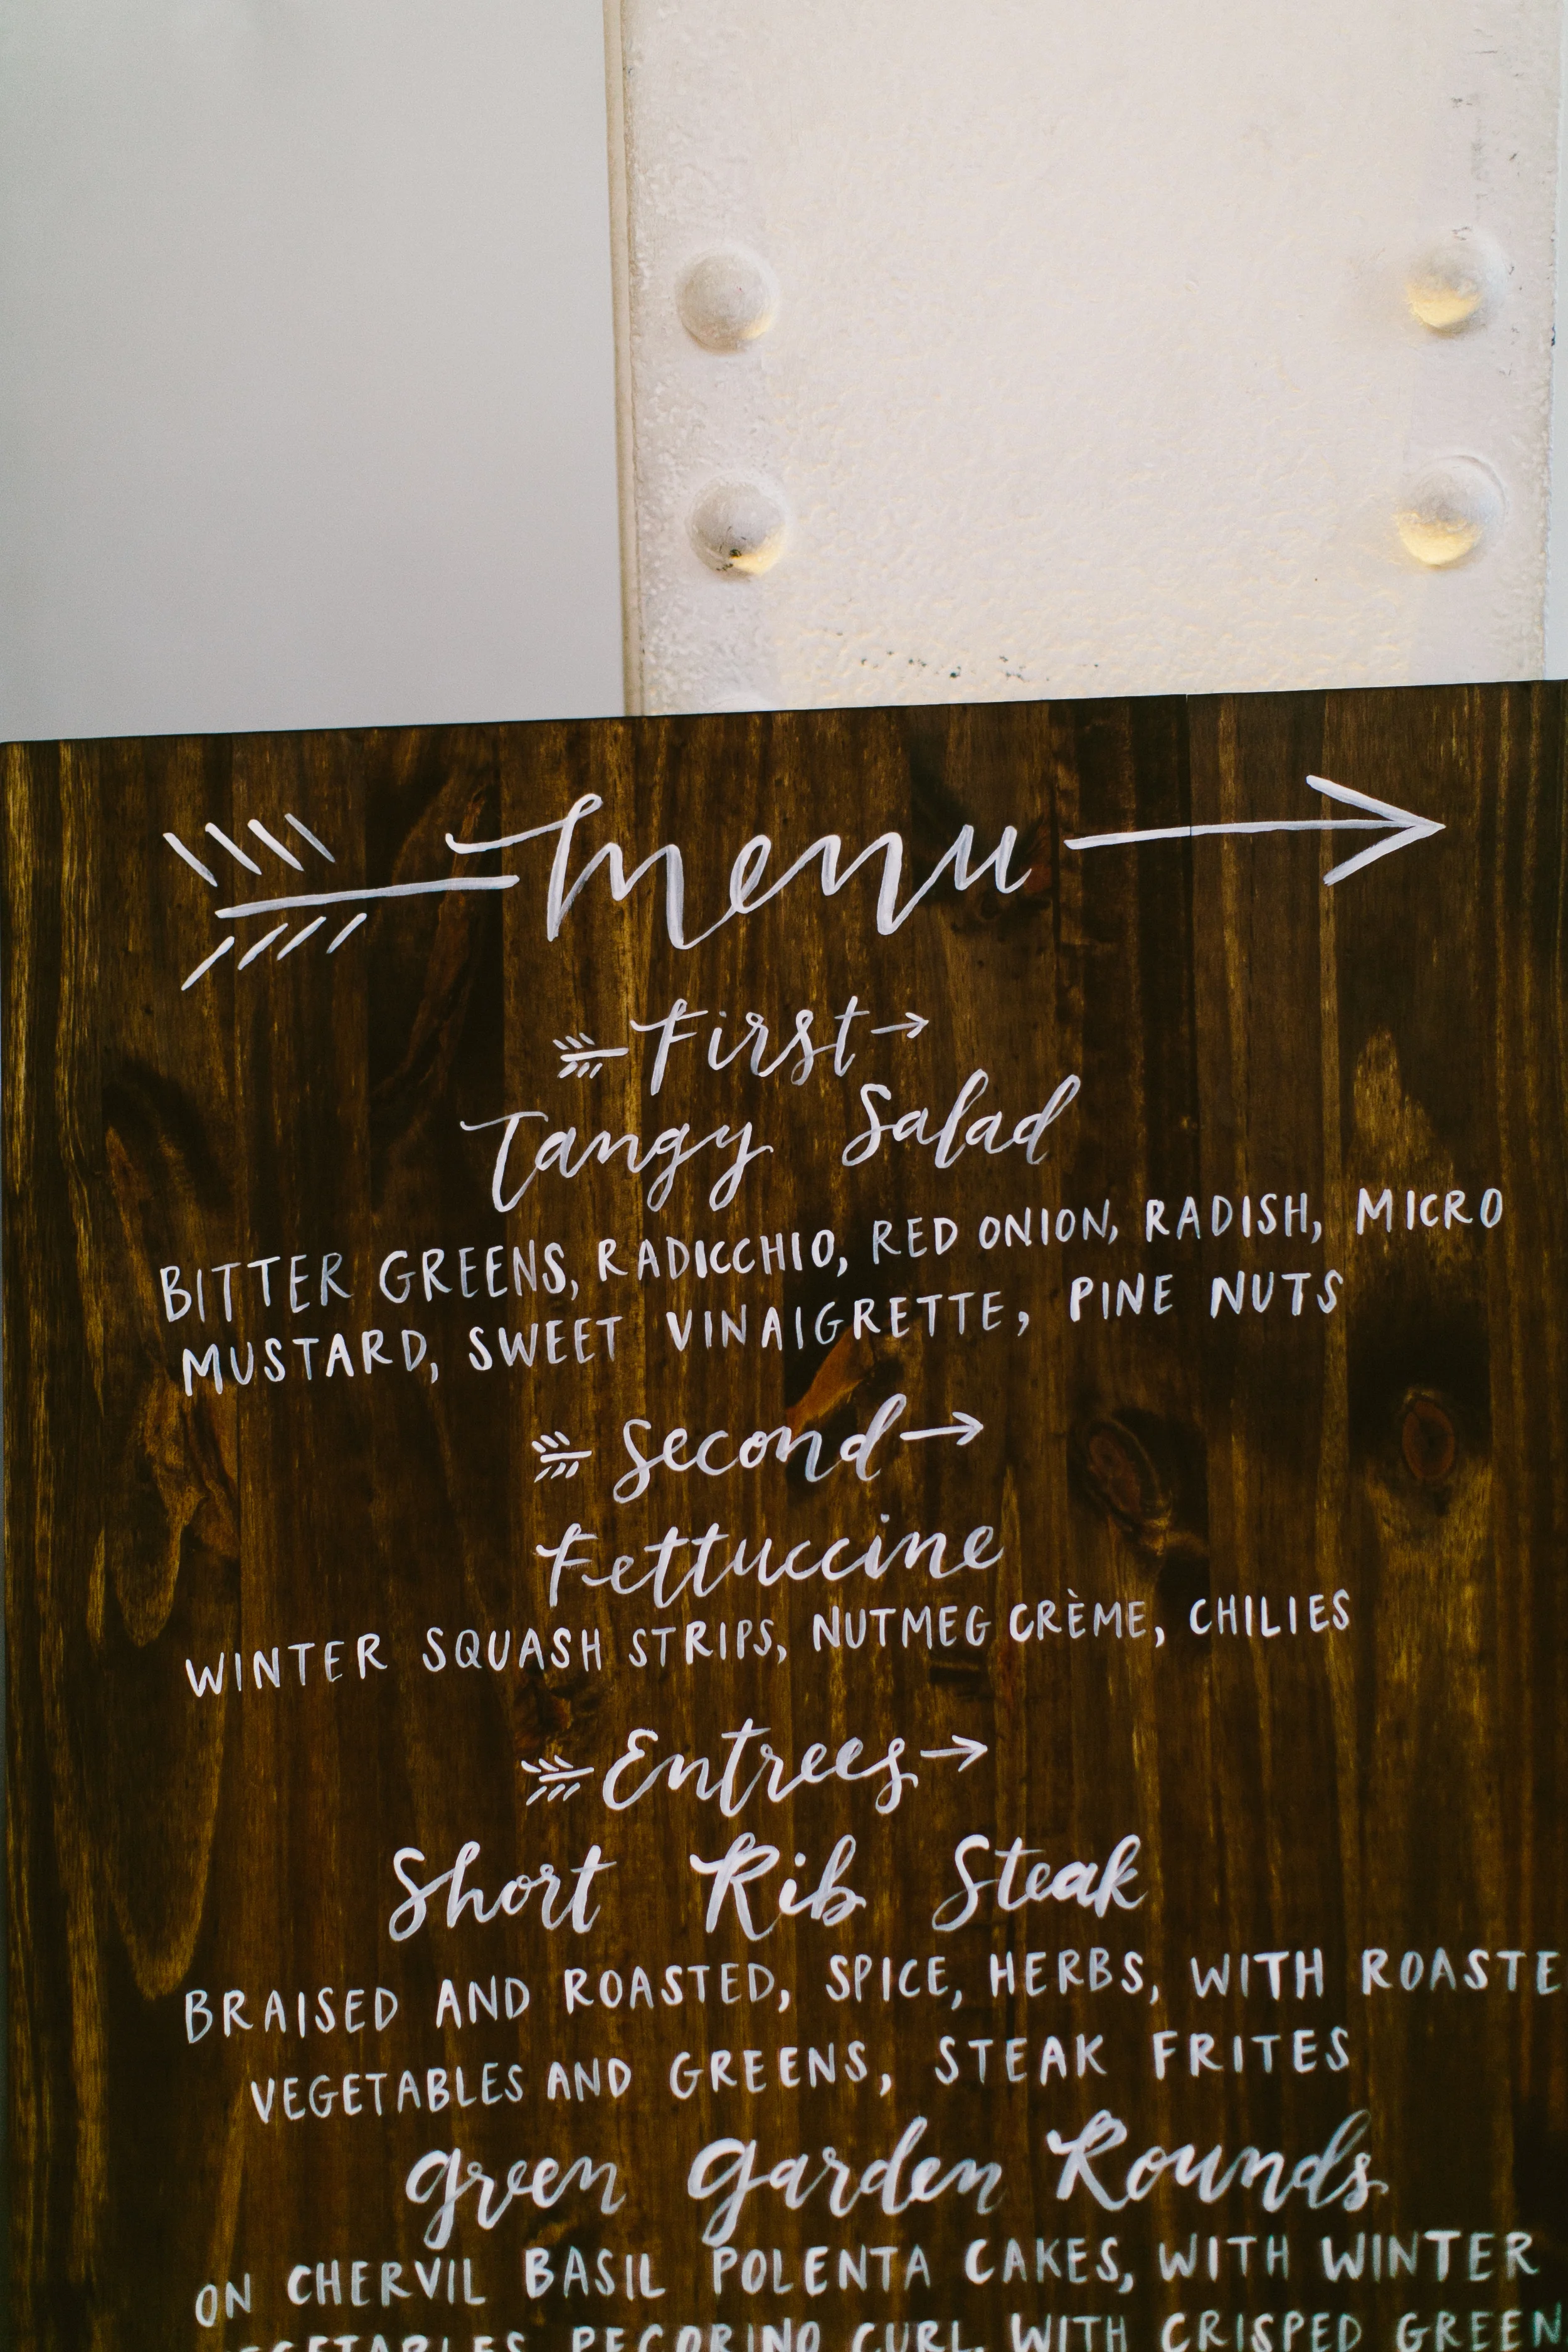 menu
First
Tangy Salad
BITTER GREENS, RADICCHIO, RED ONION, RADISH, MICRO
MUSTARD, SWEET VINAIGRETTE, PINE NUTS
Second
Fettuccine
WINTER SQUASH STRIPS, NUTMEG CRÈME, CHILIES
Entrees
Short Rib Steak
BRAISED AND ROASTED, SPICE, HERBS, WITH ROASTE
VEGETABLES AND GREENS, STEAK FRITES
Green Garden Rounds
ON CHERVIL BASIL POLENTA CAKES, WITH WINTER
VEGETABLES, PECORINO CURL, WITH CRISPED GREEN